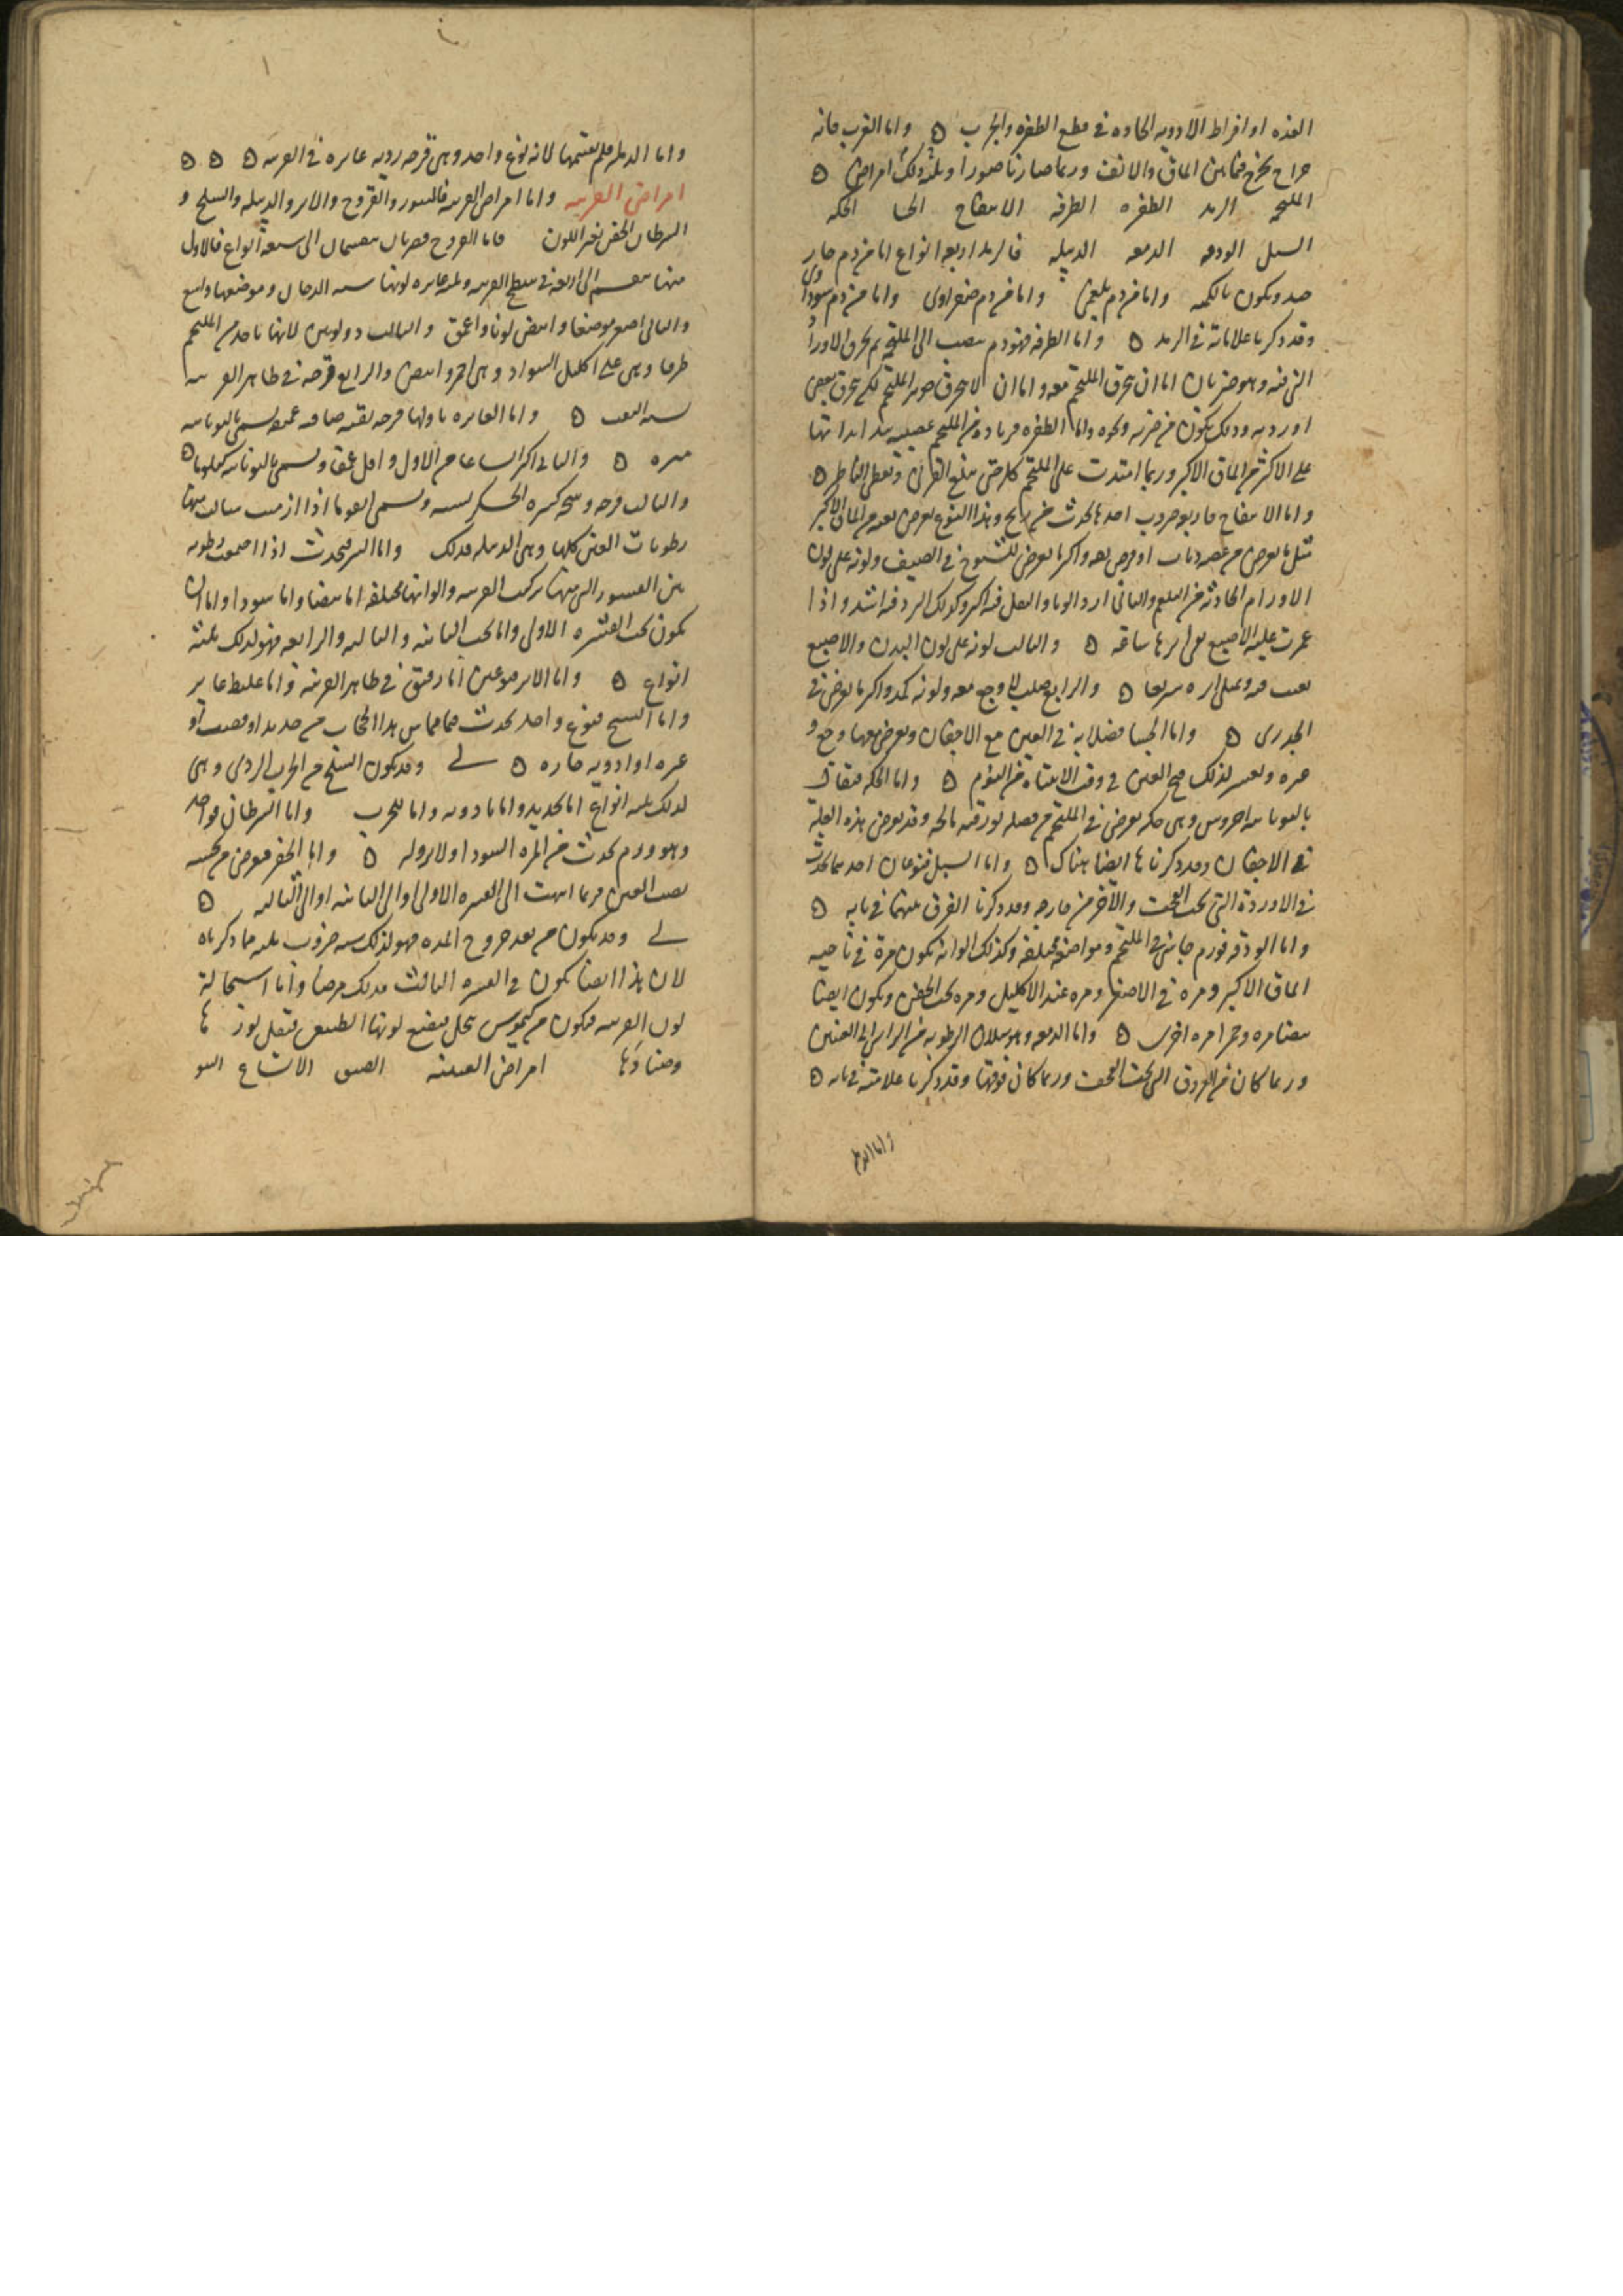 الغده او افراط الادويه الحاده في قطع الظفره والجرب ه واما الغرب فانه
خراج يخرج فيما بين الماق والانف وربما صار ناصورا وبلذلك امراض ه
الملتحم الرمد الظفره الطرفه الانتفاخ الجسا الحكه
السبل الودقه الدمعه الدبيله فالرمد اربعه انواع اما من دم حار
ويكون بالكميه واما من دم بلغمي واما من دم صفراوي واما من دم سوداوي
وقد ذكرنا علاماته في الرمد ه واما الطرفه فهو دم ينصب الى الملتحم من تخرق الاوراد
التي فيه وهو ضربان اما ان يتخرق الملتحم معه واما ان لا يتخرق الملتحم لكن يتخرق بعض
اورديه وذلك يكون من ضربه ونحوه واما الظفره فزياده من الملتحم عصبيه ابتداتها
على الاكثر من الماق الاكبر وربما امتدت على الملتحم كله حتى تبلغ القرني وتغطي الناظر ه
واما الانتفاخ فاربعه ضروب احدها يحدث من ريح وهذا النوع يعرض بغته من الماق الاكبر
مثل ما يعرض من عضه ذباب او قرص بقه واكثر ما يعرض للشيوخ في الصيف ولونه على لون
الاورام الحادثه من البلغم والثاني اردا لونا والثقل فيه اكثر وكذلك البرد فيه اشد واذا
غمزت عليه الاصبع بقي اثرها ساعه ه والثالث لونه على لون البدن والاصبع
تغيب فيه ويمتلي اثره سريعا ه والرابع صلب لا وجع معه ولونه كمد واكثر ما يعرض في
الجدري ه واما الجسا فصلابه في العين مع الاجفان ويعرض معها وجع و
حمره ويعسر لذلك فتح العين في وقت الانتباه من النوم ه واما الحكه فيقال
باليونانيه احروس وهي حكه تعرض في الملتحم من فضله بورقيه مالحه وقد تعرض هذه العله
في الاجفان وقد ذكرناها ايضا هناك ه واما السبل فنوعان احدهما يحدث
في الاورده التي تحت القحف والاخر من خارجه وقد ذكرنا الفرق بينهما في بابه ه
واما الودقه فورم جاسي في الملتحم ومواضعه مختلفه وكذلك الوانه يكون مرة في ناحيه
الماق الاكبر ومره في الاصغر ومره عند الاكليل ومره تحت الجفن ويكون ايضا
بيضا مره وحمرا مره اخرى ه واما الدمعه فهو سيلان الرطوبه من الراس الى العينين
وربما كان من العروق التي تحت القحف وربما كان فوقها وقد ذكرنا علامته في بابه ه
واما الدبيله
واما الدبيله فلم يقسمها لانه نوع واحد وهي قرحه رديه غايره في القرنيه ه ه ه
امراض القرنيه واما امراض القرنيه فالبثور والقروح والاثر والدبيله والسلخ و
السرطان الحفر تغير اللون فاما القروح فضربان ينقسمان الى سبعة انواع فالاول
منها ينقسم الى اربعه في سطح القرنيه وثلثه غايره لونها شبيه الدخان وموضعها واسع
والثاني اصغر موضعا وابيض لونا واعمق والثالث ذو لونين لانها تاخذ من الملتحم
طرفا وهي على اكليل السواد وهي احمر وابيض والرابع قرحه في ظاهر القرنيه
تشبه الشعب ه واما الغايره فاولها قرحه نقيه صافيه عميقه تسمى باليونانيه
ه والثاني اكثر اتساعا من الاول واقل عمقا وتسمى باليونانيه كيلوما ه
والثالث قرحه وسخه كثيره الخشكريشه وتسمى ابقوما اذا ازمنت سالت منها
رطوبات العين كلها وهي الدبيله كذلك واما البثر فيحدث اذا اجتمعت رطوبه
بين القشور التي منها تركيب القرنيه والوانها مختلفه اما بيضا واما سودا واما ان
تكون تحت القشره الاولى واما تحت الثانيه والثالثه والرابعه فهو لذلك ثلثه
انواع ه واما الاثر فنوعين اما رقيق في ظاهر القرنيه واما غليظ غاير
واما السلخ فنوع واحد يحدث مما يماس هذا الحجاب من حديد او قصب او
غيره او ادويه حاره ه لي وقد يكون السلخ من الجرب الردي وهي
لذلك ثلثه انواع اما بحديد واما بادويه واما بجرب واما السرطان فواحد
وهو ورم يحدث من المره السودا ولا برو له ه واما الحفر فيعرض من نخسه
تصيب العين فربما انتهت الى القشره الاولى او الى الثانيه او الى الثالثه ه
لي وقد يكون من بعد خروج المده فهو لذلك سته ضروب ثلثه ما ذكرناه
لان هذا ايضا يكون في القشره الثالث فذلك مرضا واما استحالة
لون القرنيه فيكون من كيموس يتحلل فيصبغ لونها الطبيعي فيتقل نورها
وصفاوها امراض العنبيه الضيق الاتساع النتو